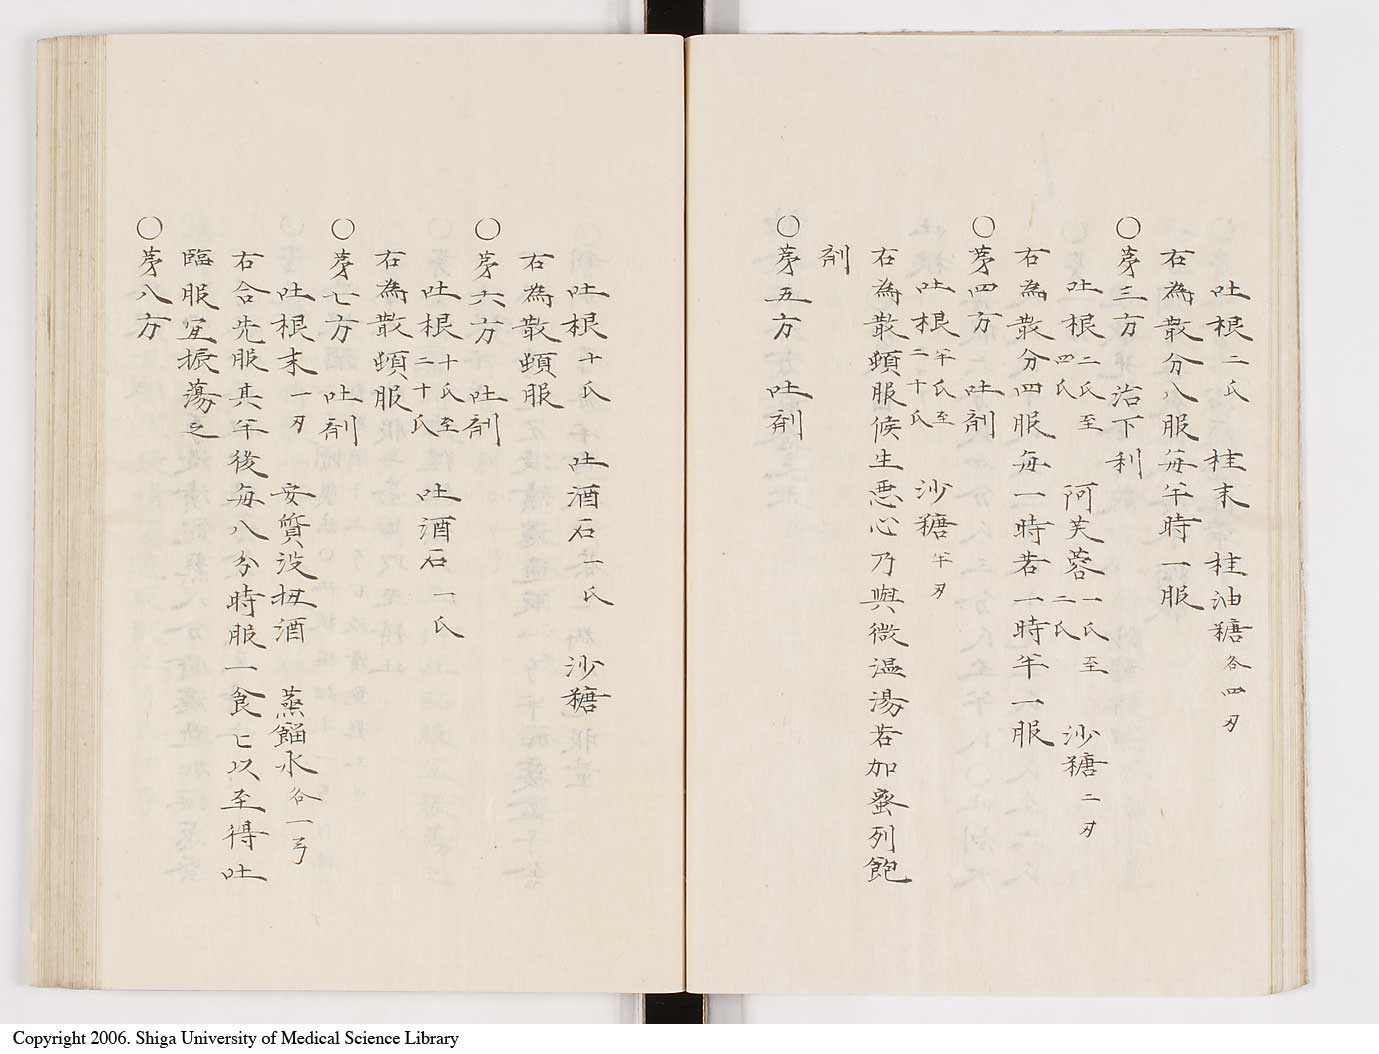 吐根二氏 桂末 桂油糖各四刃
右為散分八服毎半時一服
〇苐三方 治下利
吐根二氏至四氏 阿芙蓉一氏至二氏 沙糖二刃
右為散分四服毎一時若一時半一服
〇苐四方 吐剤
吐根半氏至二十氏 沙糖半刃
右為散頓服候生悪心乃與微温湯若加蜜列飽
剤
〇苐五方 吐剤
吐根十氏 吐酒石一氏 沙糖
右為散頓服
〇苐六方 吐剤
吐根十氏至二十氏 吐酒石一氏
右為散頓服
〇苐七方 吐剤
吐根末一刃 安質没扭酒 蒸餾水各一弓
右合先服其半後毎八分時服一食匕以至得吐
臨服宜振蕩之
〇苐八方
Copyright 2006. Shiga University of Medical Science Library